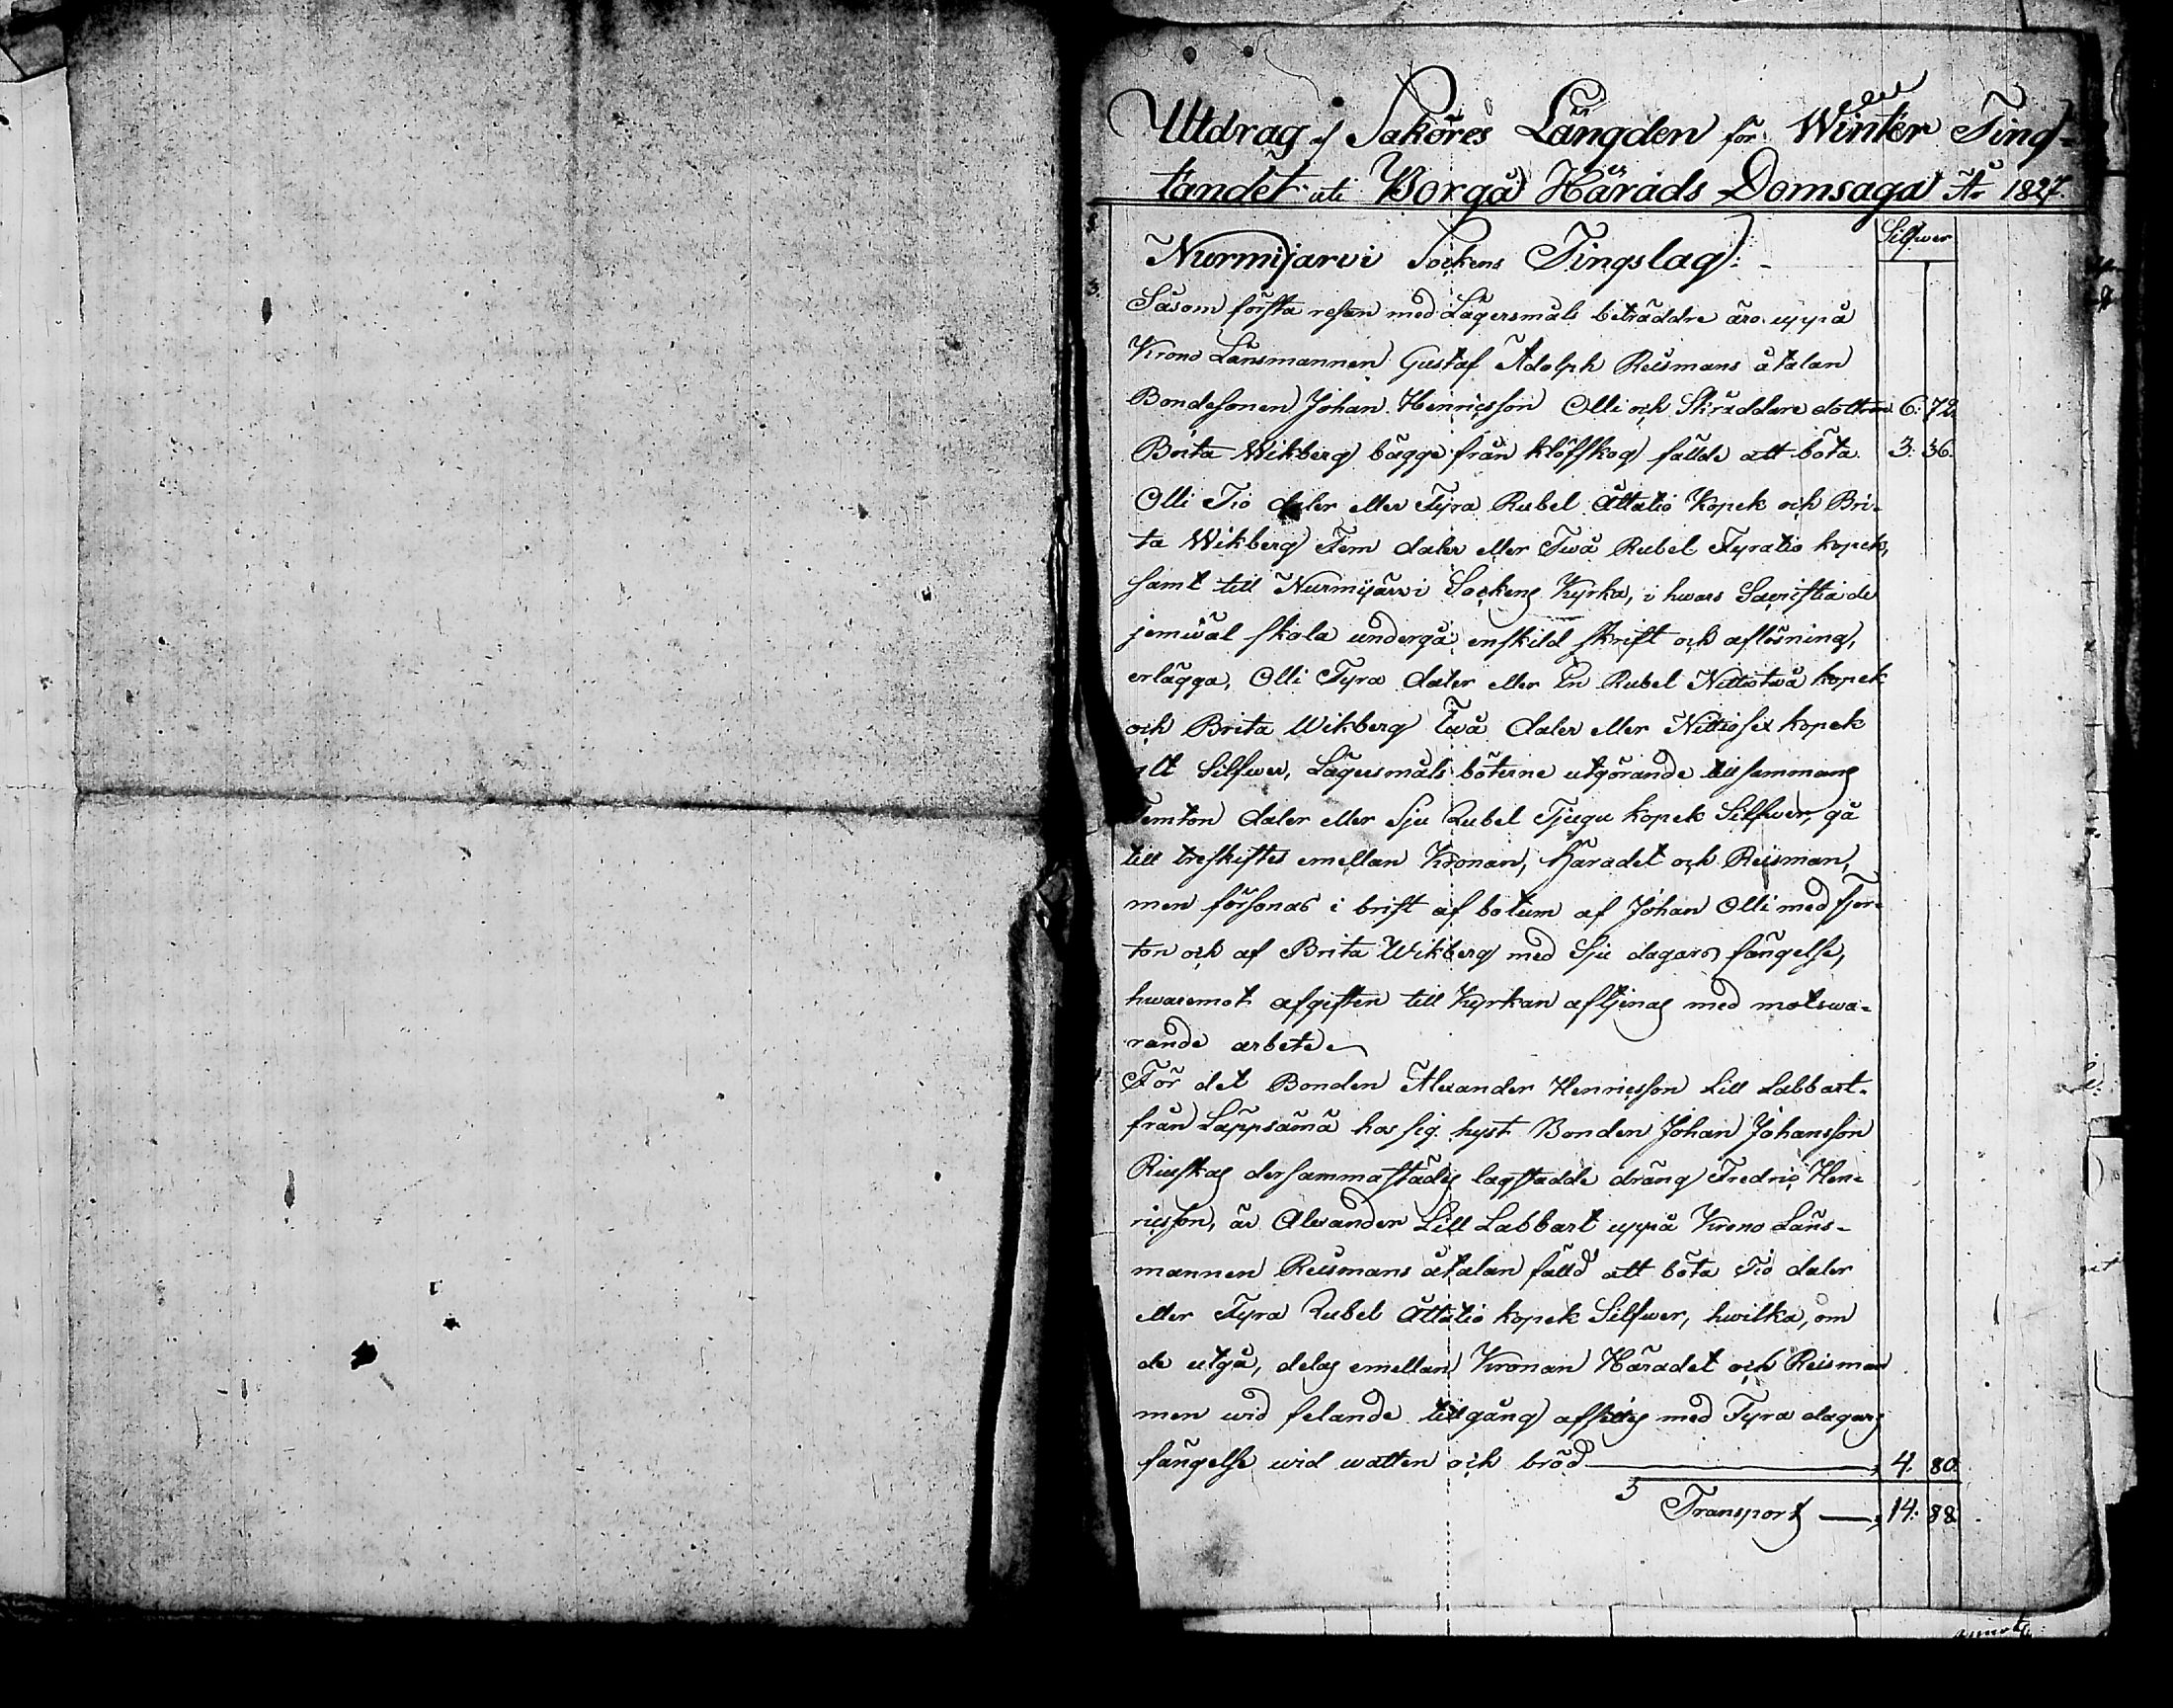 Utdrag af Saköres Längden för Winter Ting-
tandet uti Borgå Härads Domsaga År 1827.
Silfwer
Nurmijarvi Sockens Tingslag:
Såsom första resan med Lägersmåls beträdde äro uppå
Krono Länsmannen Gustaf Adolph Reismans åtalan
Bondesonen Johan Henricsson Olli och Skräddare dottren 6: 72.
Brita Wikberg bägge från Klöfskog fällde att böta 3: 36.
Olli Tio daler eller Fyra Rubel Åttatio Kopek och Bri-
ta Wikberg Fem daler eller Twå Rubel Fyratio kopek,
samt till Nurmijärvi Sockens Kyrka, i hwars Sacristia de
jemwäl skola undergå enskild skrift och aflösning,
erlägga, Olli Fyra daler eller En Rubel Nittiotwå kopek
och Brita Wikberg Twå daler eller Nittiosex kopek
allt Silfwer, Lägersmåls böterne utgörande tillsammans
Femton daler eller Sju Rubel Tjugu kopek Silfwer, gå
till treskiftes emellan Kronan, Häradet och Reisman,
men försonas i brist af botum af Johan Olli med fjor-
ton och af Brita Wikberg med Sju dagars fängelse,
hwaremot afgiften till Kyrkan aftjenas med motswa-
rande arbete.
För det Bonden Alexander Henricsson Lill Labbart
från Lappsämä hos sig hyst Bonden Johan Johansson
Riuskas dersammastädes lagstadde dräng Fredric Hen-
ricsson, är Alexander Lill Labbart uppå Krono Läns-
mannen Reismans åtalan fälld att böta Tio daler
eller Fyra Rubel Åttatio kopek Silfwer, hwilka, om
de utgå, delas emellan Kronan Häradet och Reisman
men wid felande tillgång afsittes med Fyra dagars
fängelse wid watten och bröd 4. 80.
Transport 14: 88.